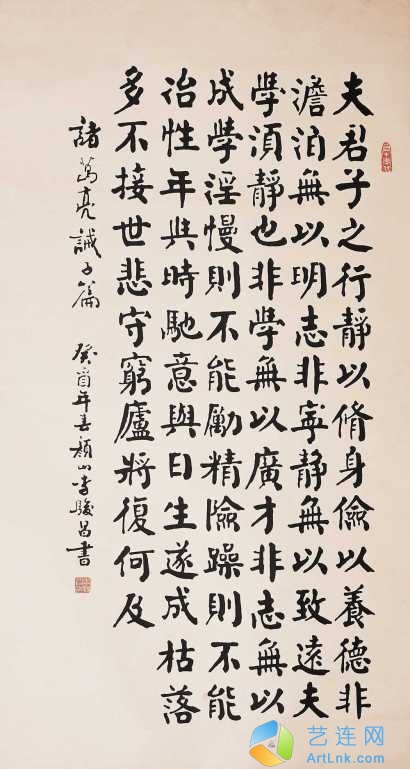 夫君子之行靜以脩身儉以養德非
澹泊無以明志非寧靜無以致遠夫
學湏靜也非學無以廣才非志無以
成學淫慢則不能勵精險躁則不能
冶性年與時馳意與日生遂成枯落
多不接世悲守窮廬將復何及
諸葛亮誡子篇
癸酉年春顏山李駿昌書
艺连网
ArtLnk.com